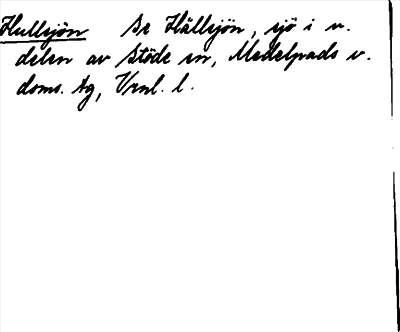 Hullsjön Se Hällsjön, sjö i n.
delen av Stöde sn, Medelpads v.
doms. tg, Vrnl. l.